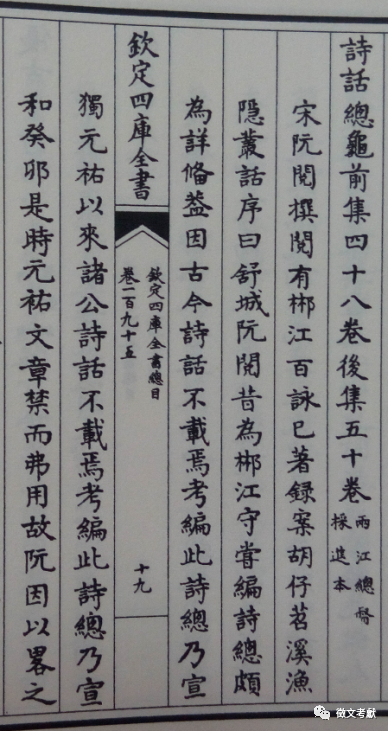 詩話總龜前集四十八卷後集五十卷
兩江總督
採進本
宋阮閱撰閱有郴江百詠已著録案胡仔苕溪漁
隱叢話序曰舒城阮閱昔為郴江守嘗編詩總頗
為詳備葢因古今詩話不載焉考編此詩總乃宣
欽定四庫全書
欽定四庫全書總目
卷二百九十五
十九
獨元祐以來諸公詩話不載焉考編此詩總乃宣
和癸卯是時元祐文章禁而弗用故阮因以畧之
徵文考獻